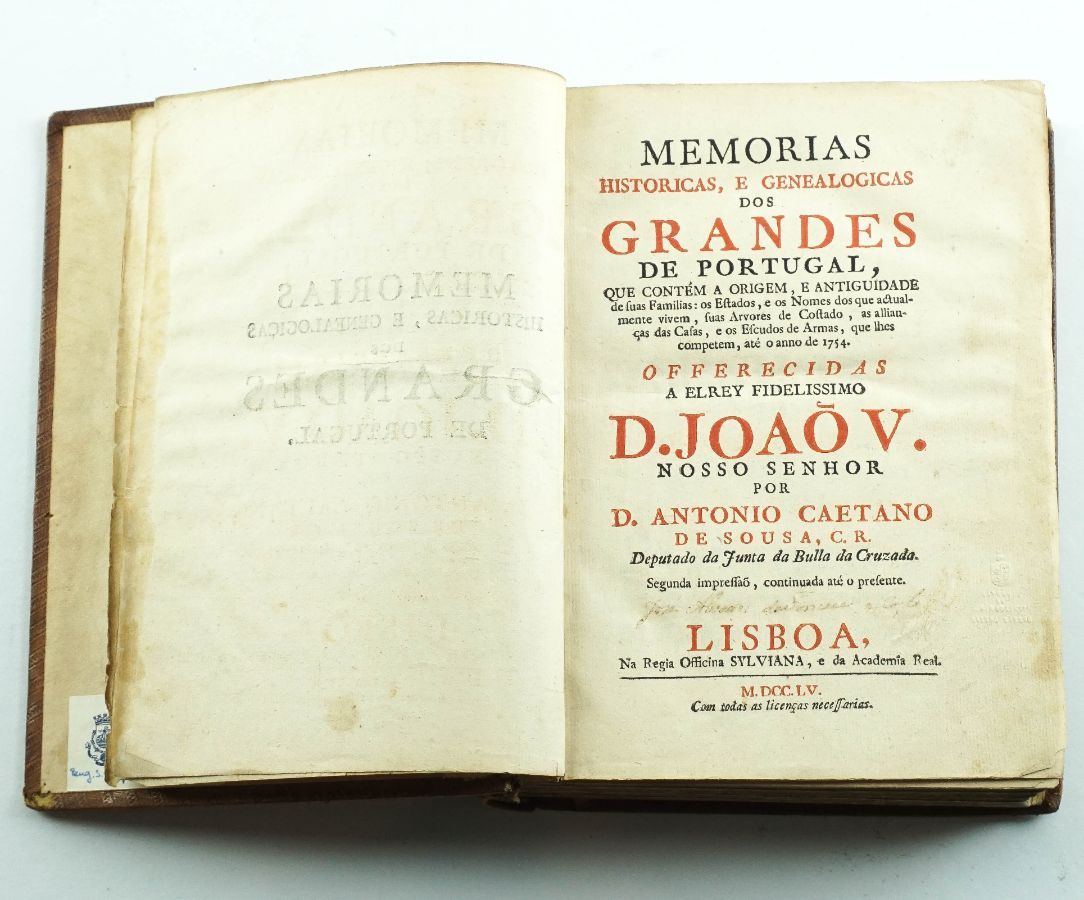 MEMORIAS
HISTORICAS, E GENEALOGICAS
DOS
GRANDES
DE PORTUGAL,
QUE CONTÉM A ORIGEM, E ANTIGUIDADE
de ſuas Familias: os Eſtados, e os Nomes dos que actual-
mente vivem, ſuas Arvores de Coſtado, as allian-
ças das Caſas, e os Eſcudos de Armas, que lhes
competem, até o anno de 1754.
OFFERECIDAS
A ELREY FIDELISSIMO
D. JOAÕ V.
NOSSO SENHOR
POR
D. ANTONIO CAETANO
DE SOUSA, C. R.
Deputado da Junta da Bulla da Cruzada.
Segunda impreſſaõ, continuada até o preſente.
LISBOA,
Na Regia Officina SYLVIANA, e da Academia Real.
M. DCC. LV.
Com todas as licenças neceſſarias.